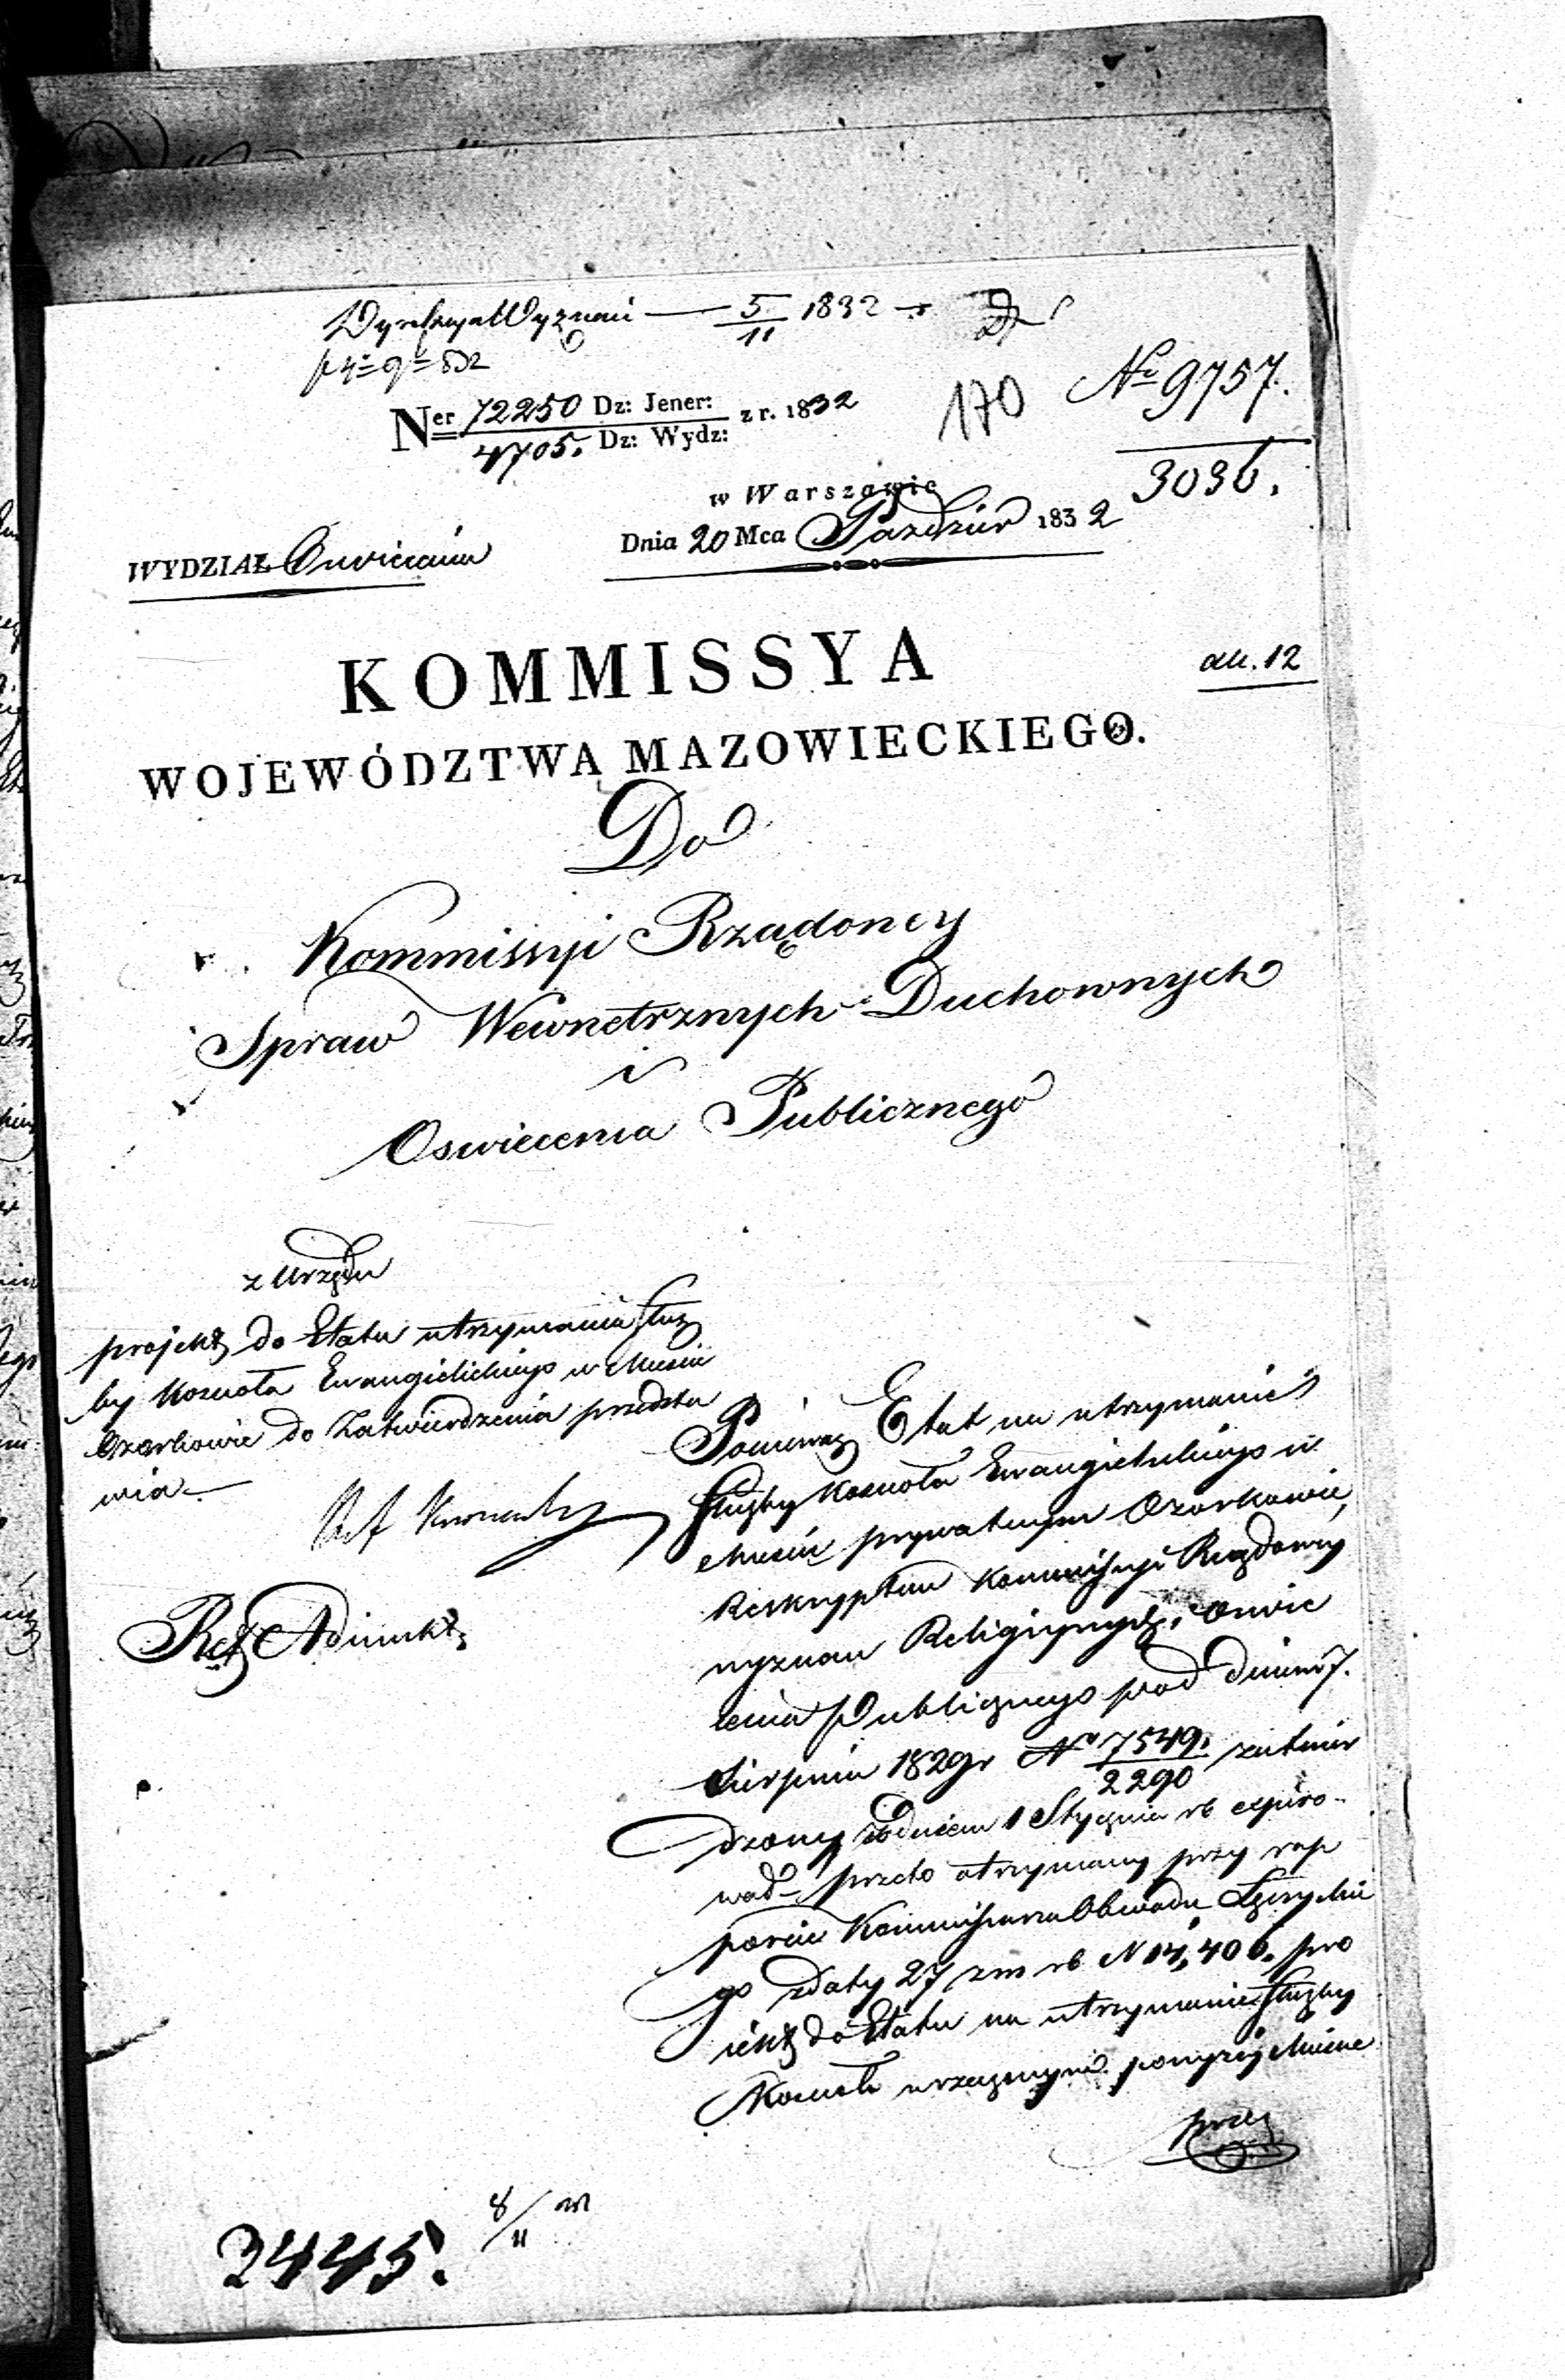 Dyrekcya Wyznań — 5/11 1832
Ner 72250 Dz: Jener: z r. 1832
4705. Dz: Wydz:
170
No 9757.
3036.
w Warszawie
Dnia 20 Mca Pazdzier 1832
WYDZIAŁ Oswiecenia
KOMMISSYA
all. 12
WOJEWÓDZTWA MAZOWIECKIEGO.
Do
Kommissyi Rządowey
Spraw Wewnetrznych Duchownych
i
Oswiecenia Publicznego
z Urzędu
projekt do Etatu utrzymania służ
by Koscioła Ewangielickiego w Miescie
Ozorkowie do Zatwierdzenia przedsta
wia. —
Ref
Ref Adiunkt
Ponieważ Etat na utrzymanie
służby Koscioła Ewangielickiego w
Miescie prywatnym Ozorkowie,
Reskryptem Kommissyi Rządowey
wyznań Religiynych i Oswie
cenia Publicznego pod dniem 7.
Sierpnia 1829r No 7549./2290 zatwier
dzony z dniem 1 Stycznia rb expiro-
wał — przeto otrzymany przy rap
porcie Kommissarza Obwodu Łęczyckie
go z daty 27 zm rb N 14,406. pro
iekt do Etatu na utrzymanie służby
Kościoła w rzeczonym powyżey Miescie
przez
3445. 8/11